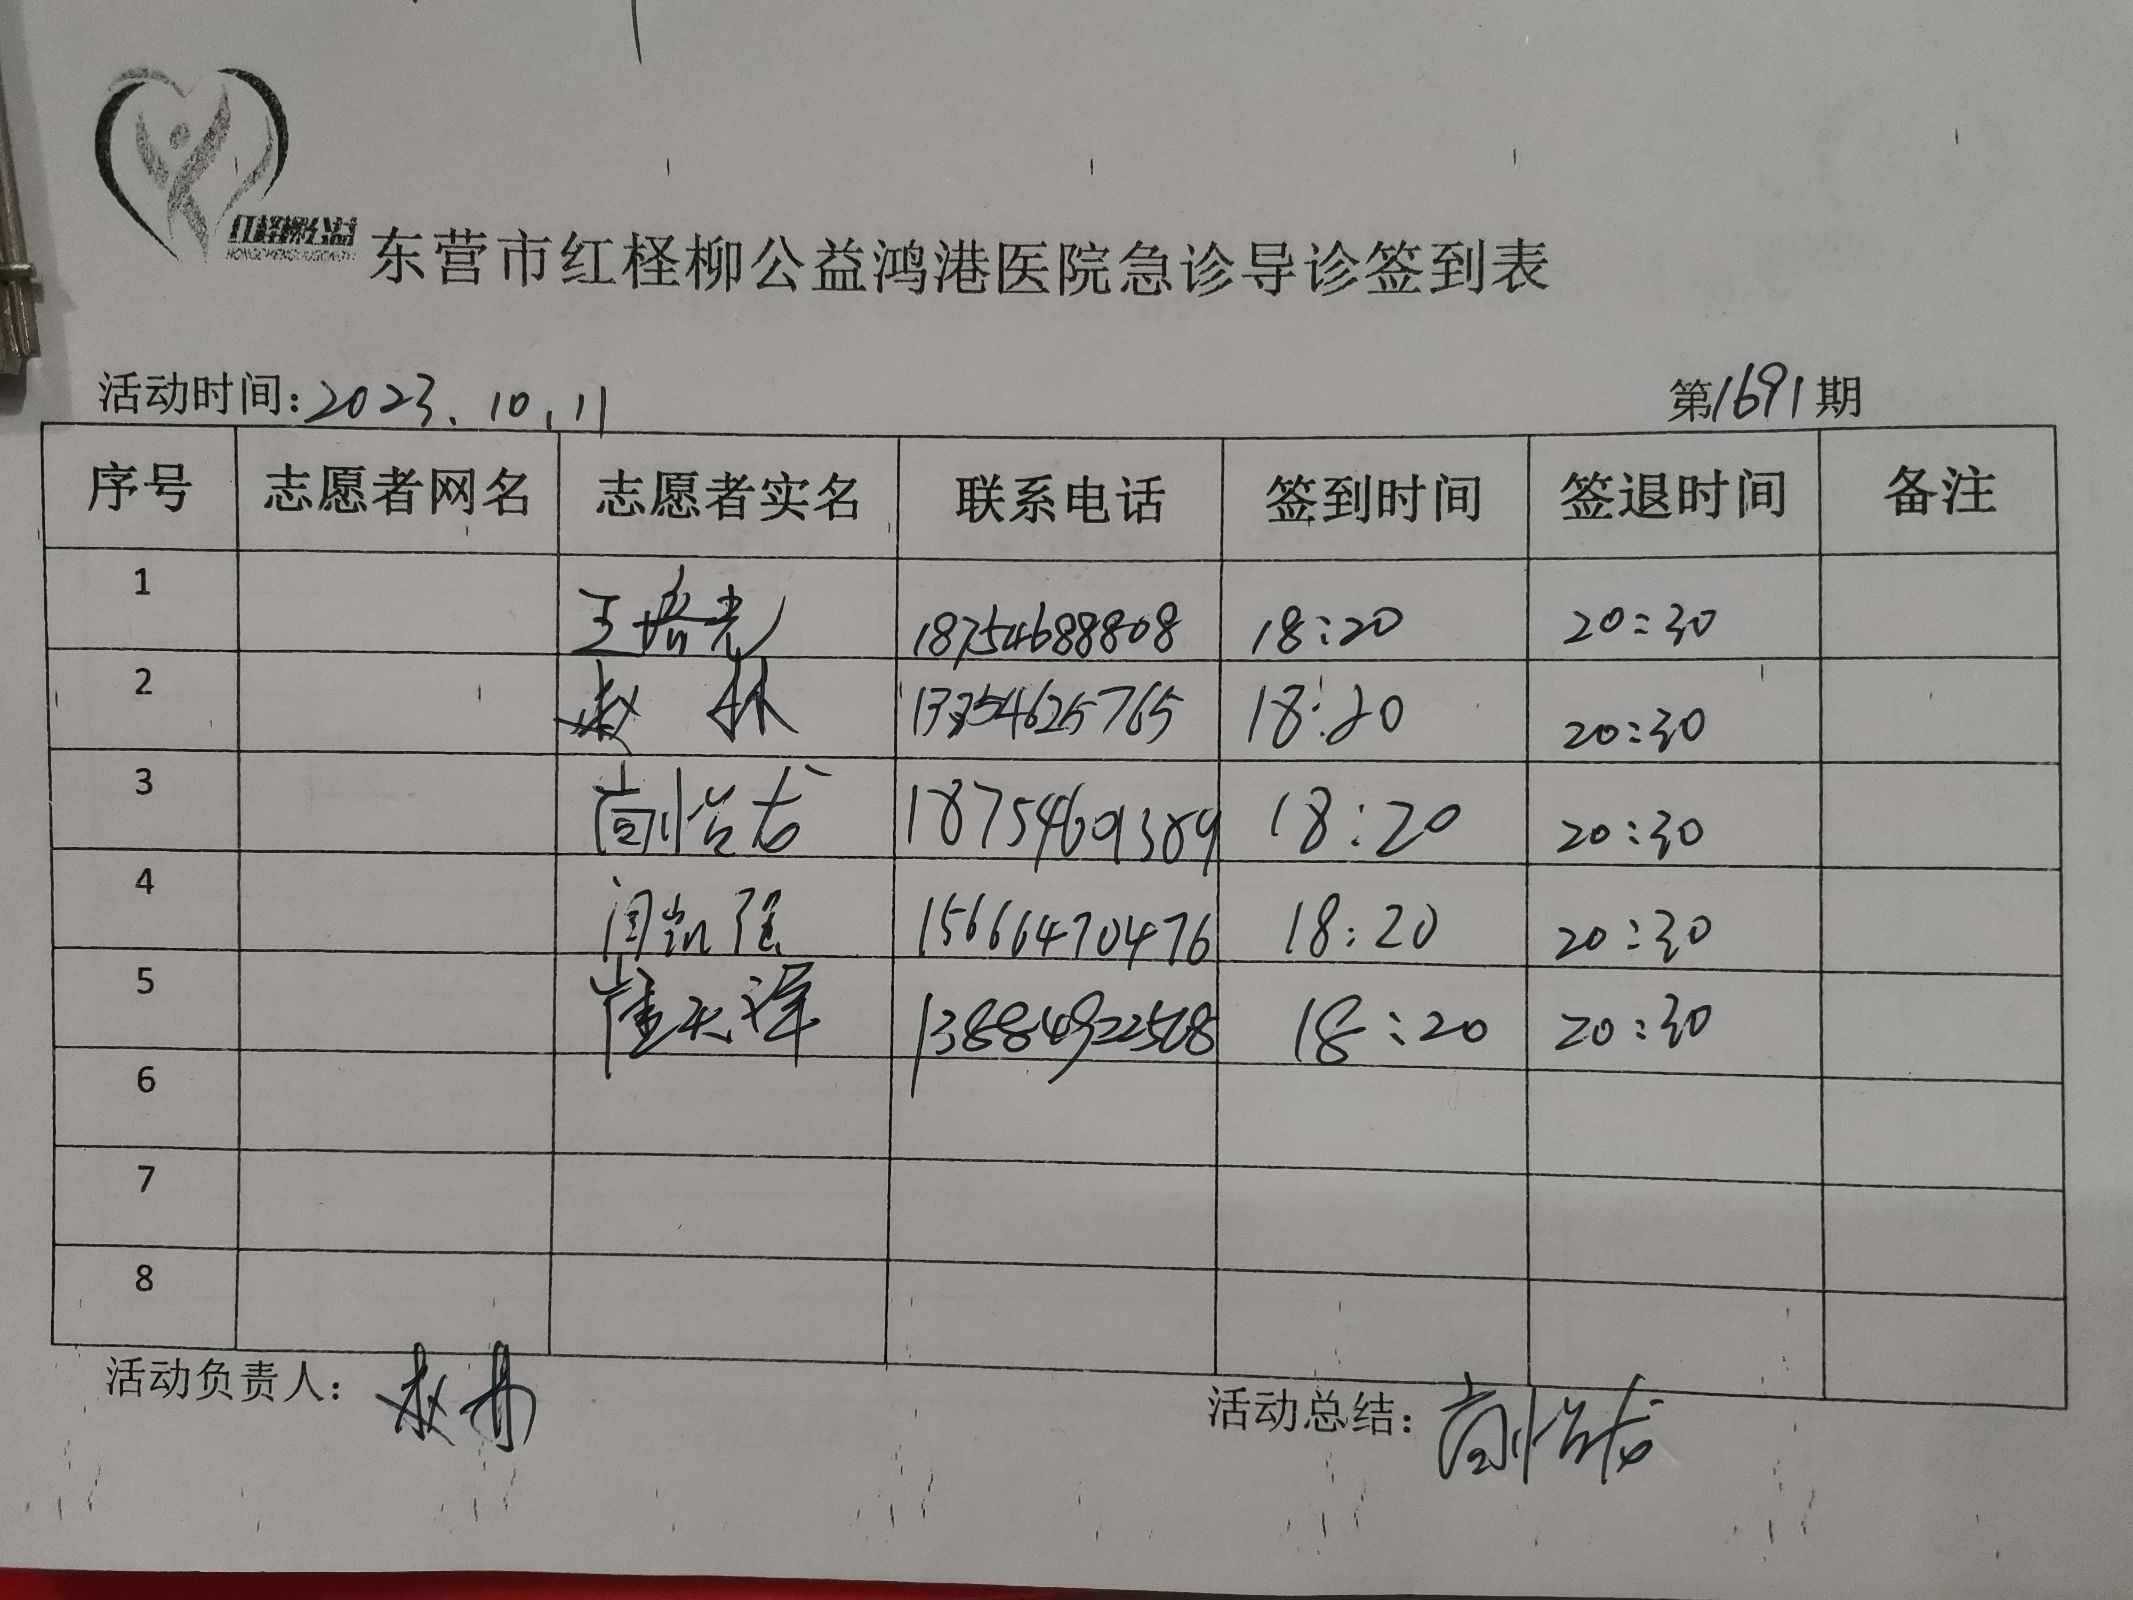 红柽柳公益
东营市红柽柳公益鸿港医院急诊导诊签到表
活动时间:2023.10.11 第1691期
序号 志愿者网名 志愿者实名 联系电话 签到时间 签退时间 备注
1 王培光 18754688808 18:20 20:30
2 赵林 13754625765 18:20 20:30
3 18754691389 18:20 20:30
4 闫凯强 15666470476 18:20 20:30
5 崔天泽 13884922508 18:20 20:30
6
7
8
活动负责人: 活动总结: